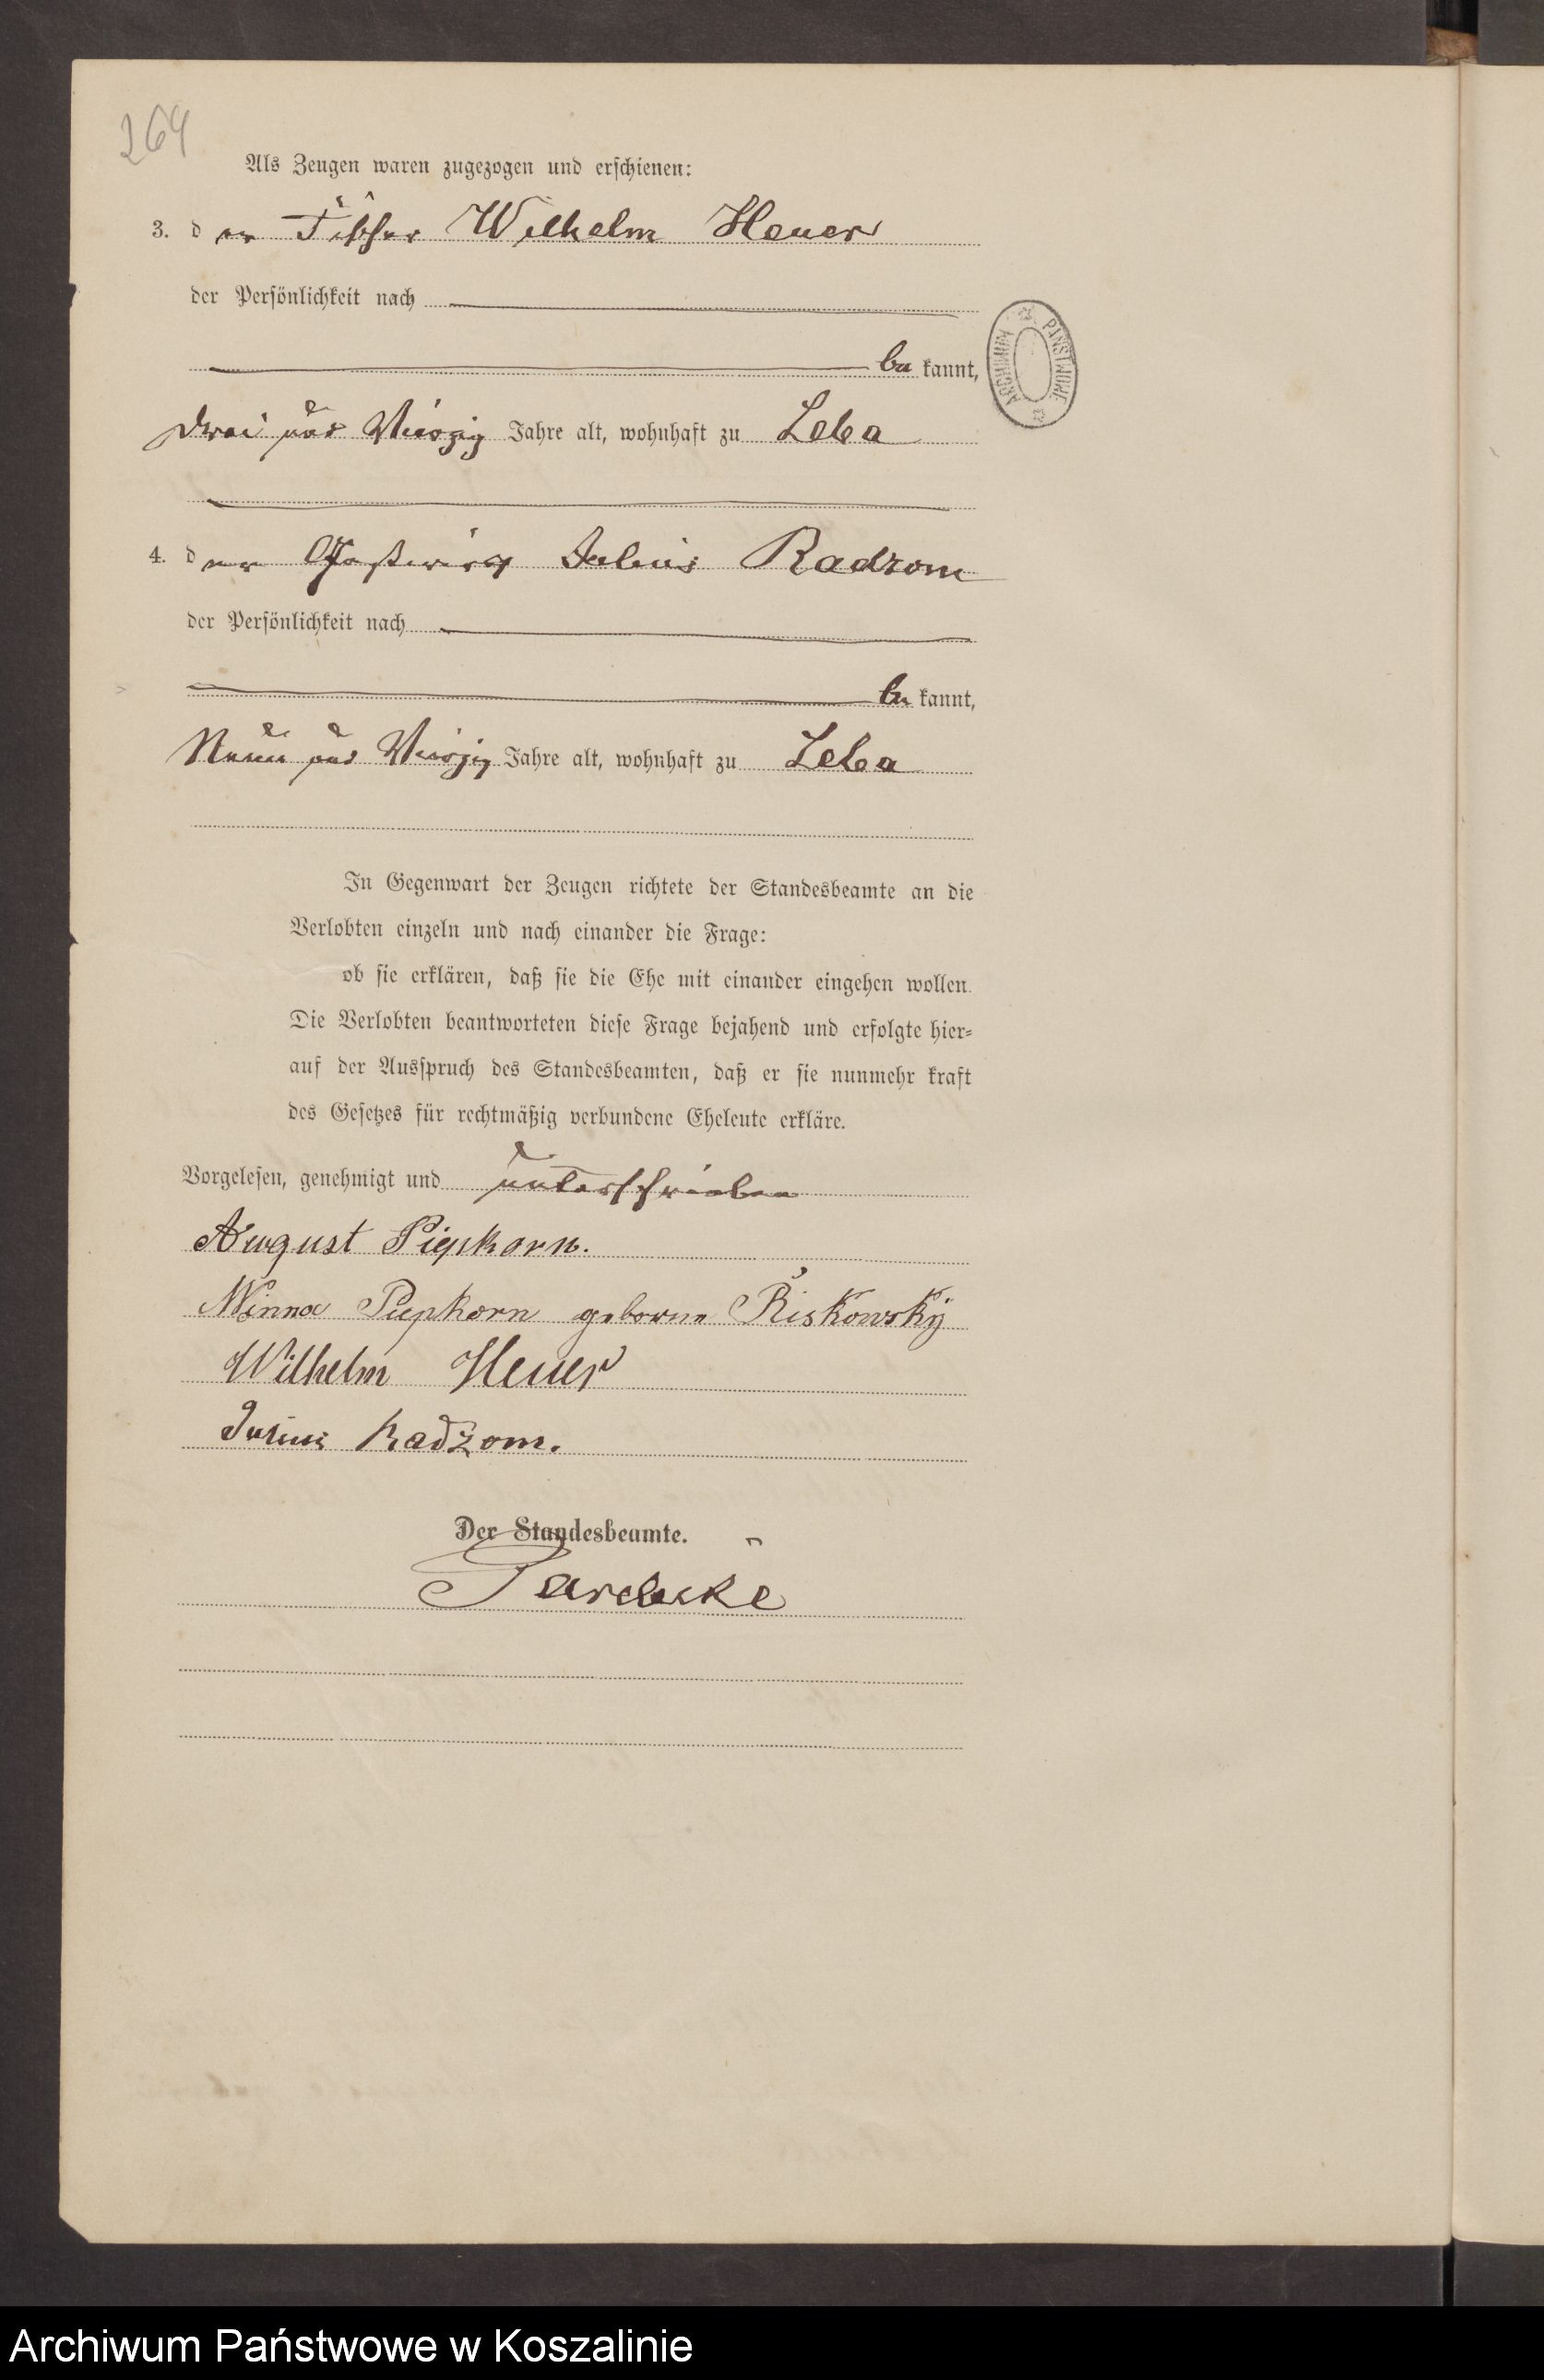 264
Als Zeugen waren zugezogen und erschienen:
3. der Fischer Wilhelm Heuer
der Persönlichkeit nach
bekannt,
drei und vierzig Jahre alt, wohnhaft zu Leba
4. der Gastwirt Julius Radzom
der Persönlichkeit nach
bekannt,
neun und vierzig Jahre alt, wohnhaft zu Leba
In Gegenwart der Zeugen richtete der Standesbeamte an die
Verlobten einzeln und nach einander die Frage:
ob sie erklären, daß sie die Ehe mit einander eingehen wollen.
Die Verlobten beantworteten diese Frage bejahend und erfolgte hier-
auf der Ausspruch des Standesbeamten, daß er sie nunmehr kraft
des Gesetzes für rechtmäßig verbundene Eheleute erkläre.
Vorgelesen, genehmigt und unterschrieben
August Piepkorn.
Minna Piepkorn geborne Riskowsky
Wilhelm Heuer
Julius Radzom.
Der Standesbeamte.
ARCHIWUM PAŃSTWOWE
Archiwum Państwowe w Koszalinie